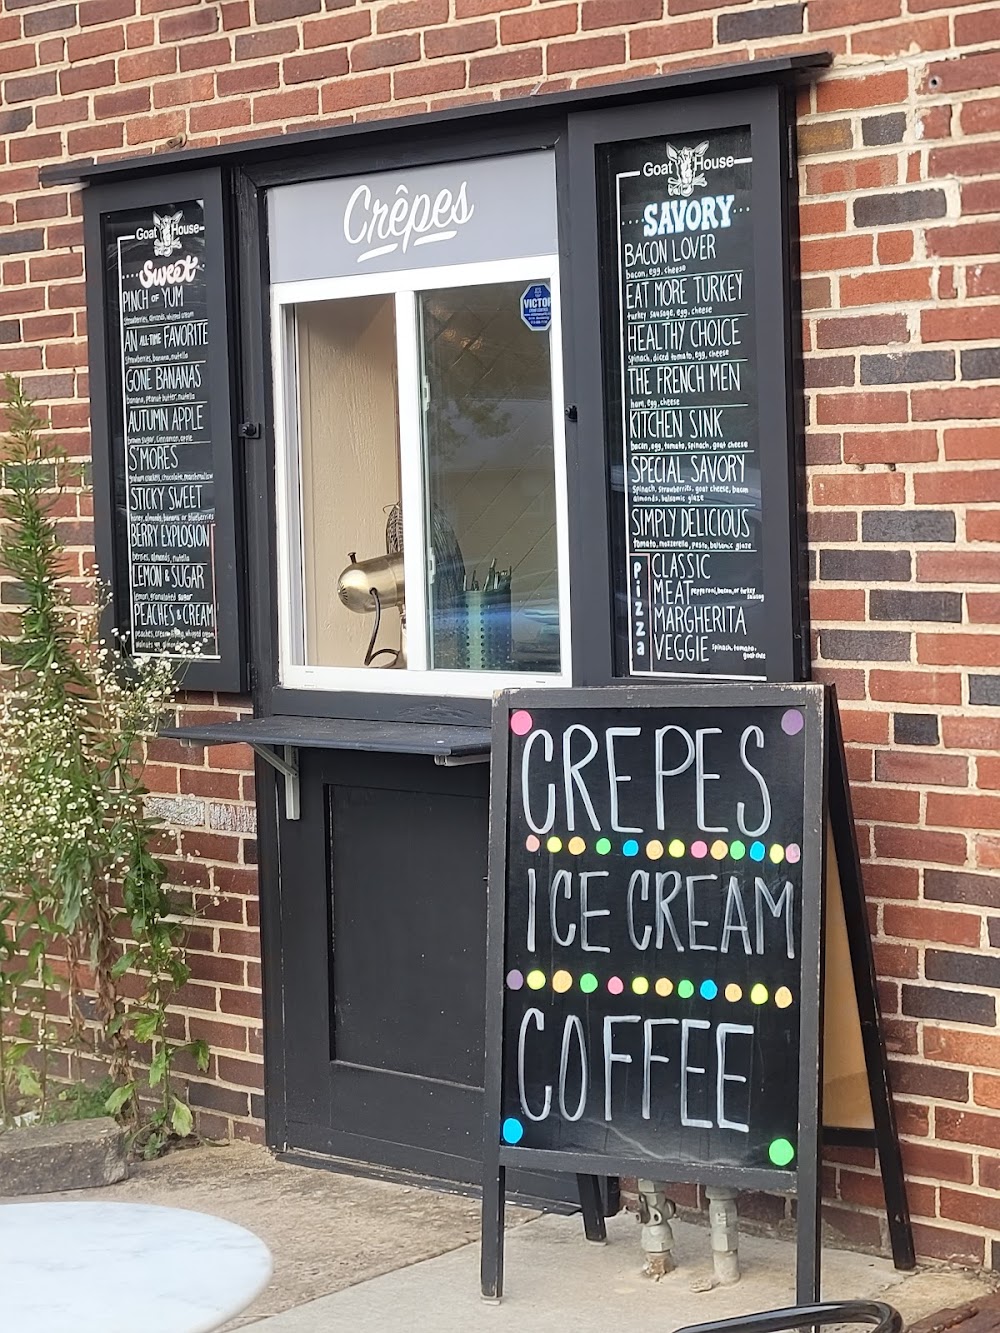 Crêpes
Goat House
Sweet
PINCH OF YUM
strawberries, almonds, whipped cream
AN ALL-TIME FAVORITE
strawberries, banana, nutella
GONE BANANAS
banana, peanut butter, nutella
AUTUMN APPLE
brown sugar, cinnamon, apple
S'MORES
graham crackers, chocolate, marshmallow
STICKY SWEET
honey, almonds, banana or blueberries
BERRY EXPLOSION
berries, almonds, nutella
LEMON & SUGAR
lemon, granulated sugar
PEACHES & CREAM
peaches, cream, whipped cream,
VICTOR
Goat House
SAVORY
BACON LOVER
bacon, egg, cheese
EAT MORE TURKEY
turkey sausage, egg, cheese
HEALTHY CHOICE
spinach, diced tomato, egg, cheese
THE FRENCH MEN
ham, egg, cheese
KITCHEN SINK
bacon, egg, tomato, spinach, goat cheese
SPECIAL SAVORY
spinach, strawberries, goat cheese, bacon
almonds, balsamic glaze
SIMPLY DELICIOUS
tomato, mozzarella, pesto, balsamic glaze
Pizza
CLASSIC
MEAT pepperoni, bacon, or turkey
sausage
MARGHERITA
VEGGIE spinach, tomato,
goat chee
CREPES
ICE CREAM
COFFEE